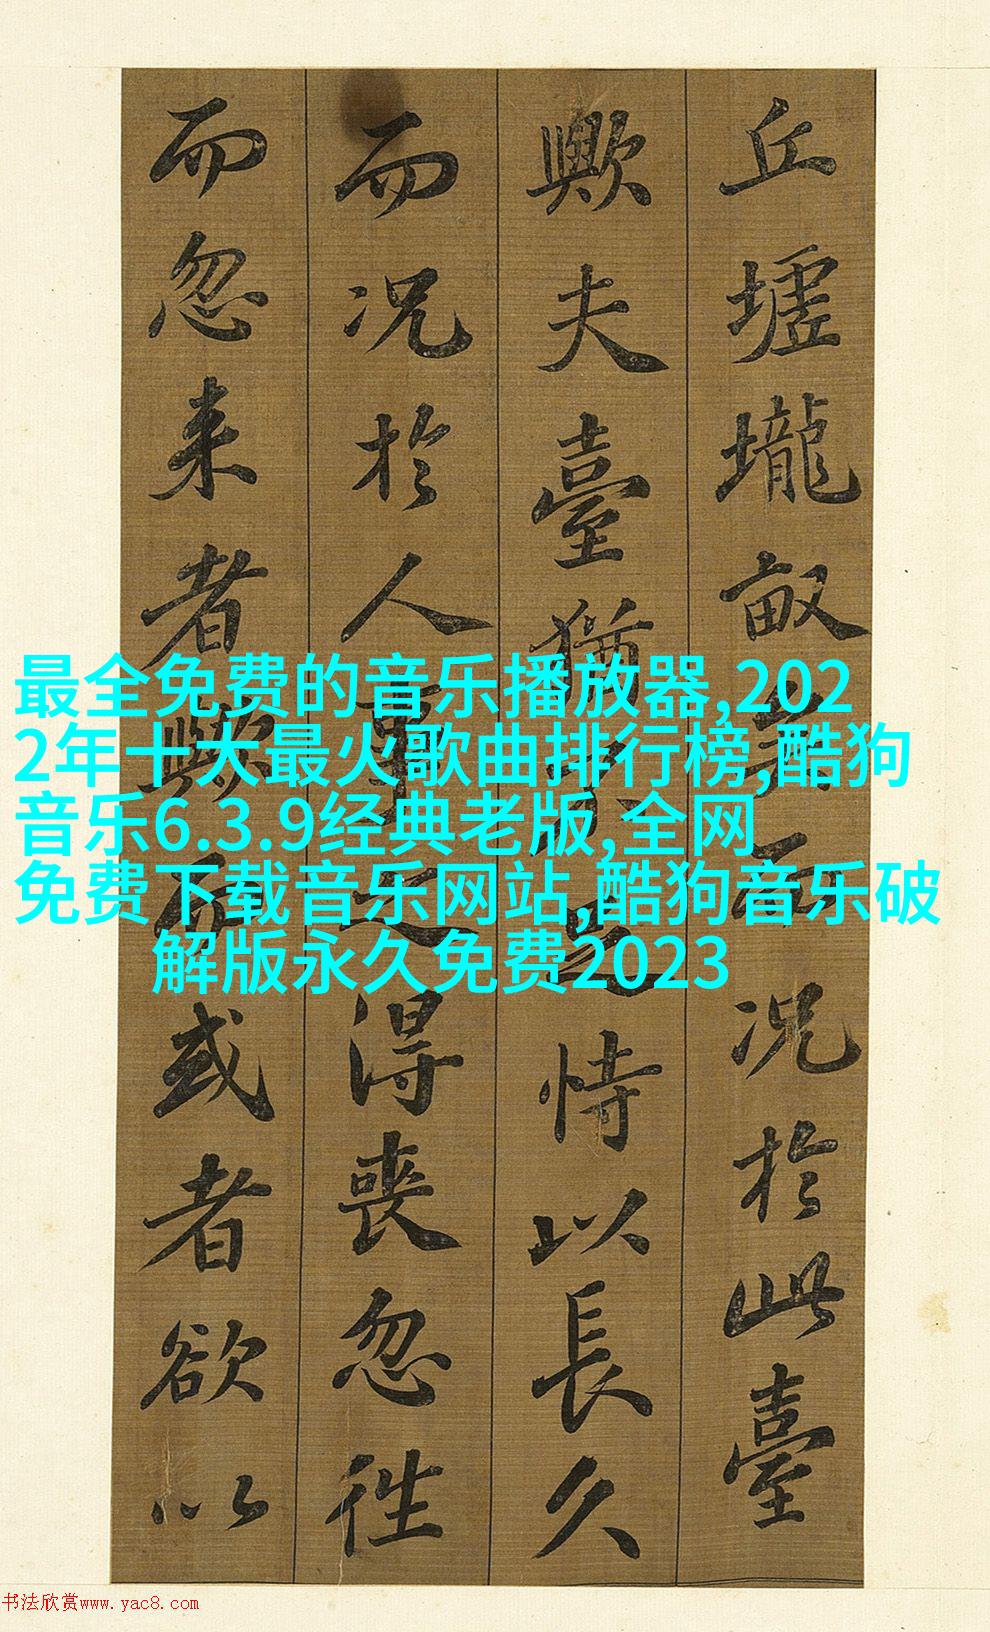 丘墟壠畝矣而况於此臺
歟夫臺猶不足恃以長久
而况於人事之得喪忽往
而忽来者歟而或者欲以
最全免费的音乐播放器,202
2年十大最火歌曲排行榜,酷狗
音乐6.3.9经典老版,全网
免费下载音乐网站,酷狗音乐破
解版永久免费2023
书法欣赏www.yac8.com